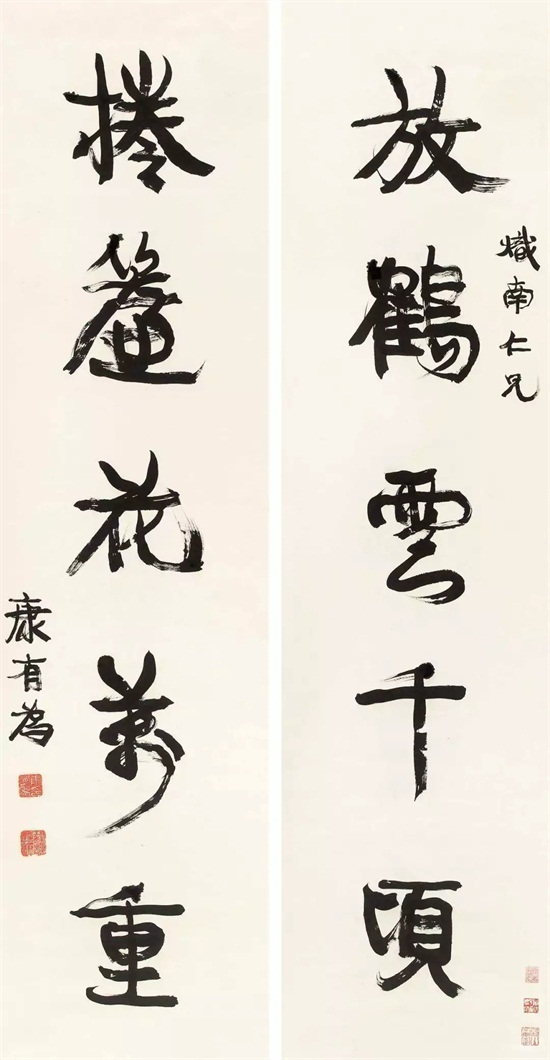 放鶴雲千頃
熾南仁兄
捲簾花萬重
康有為